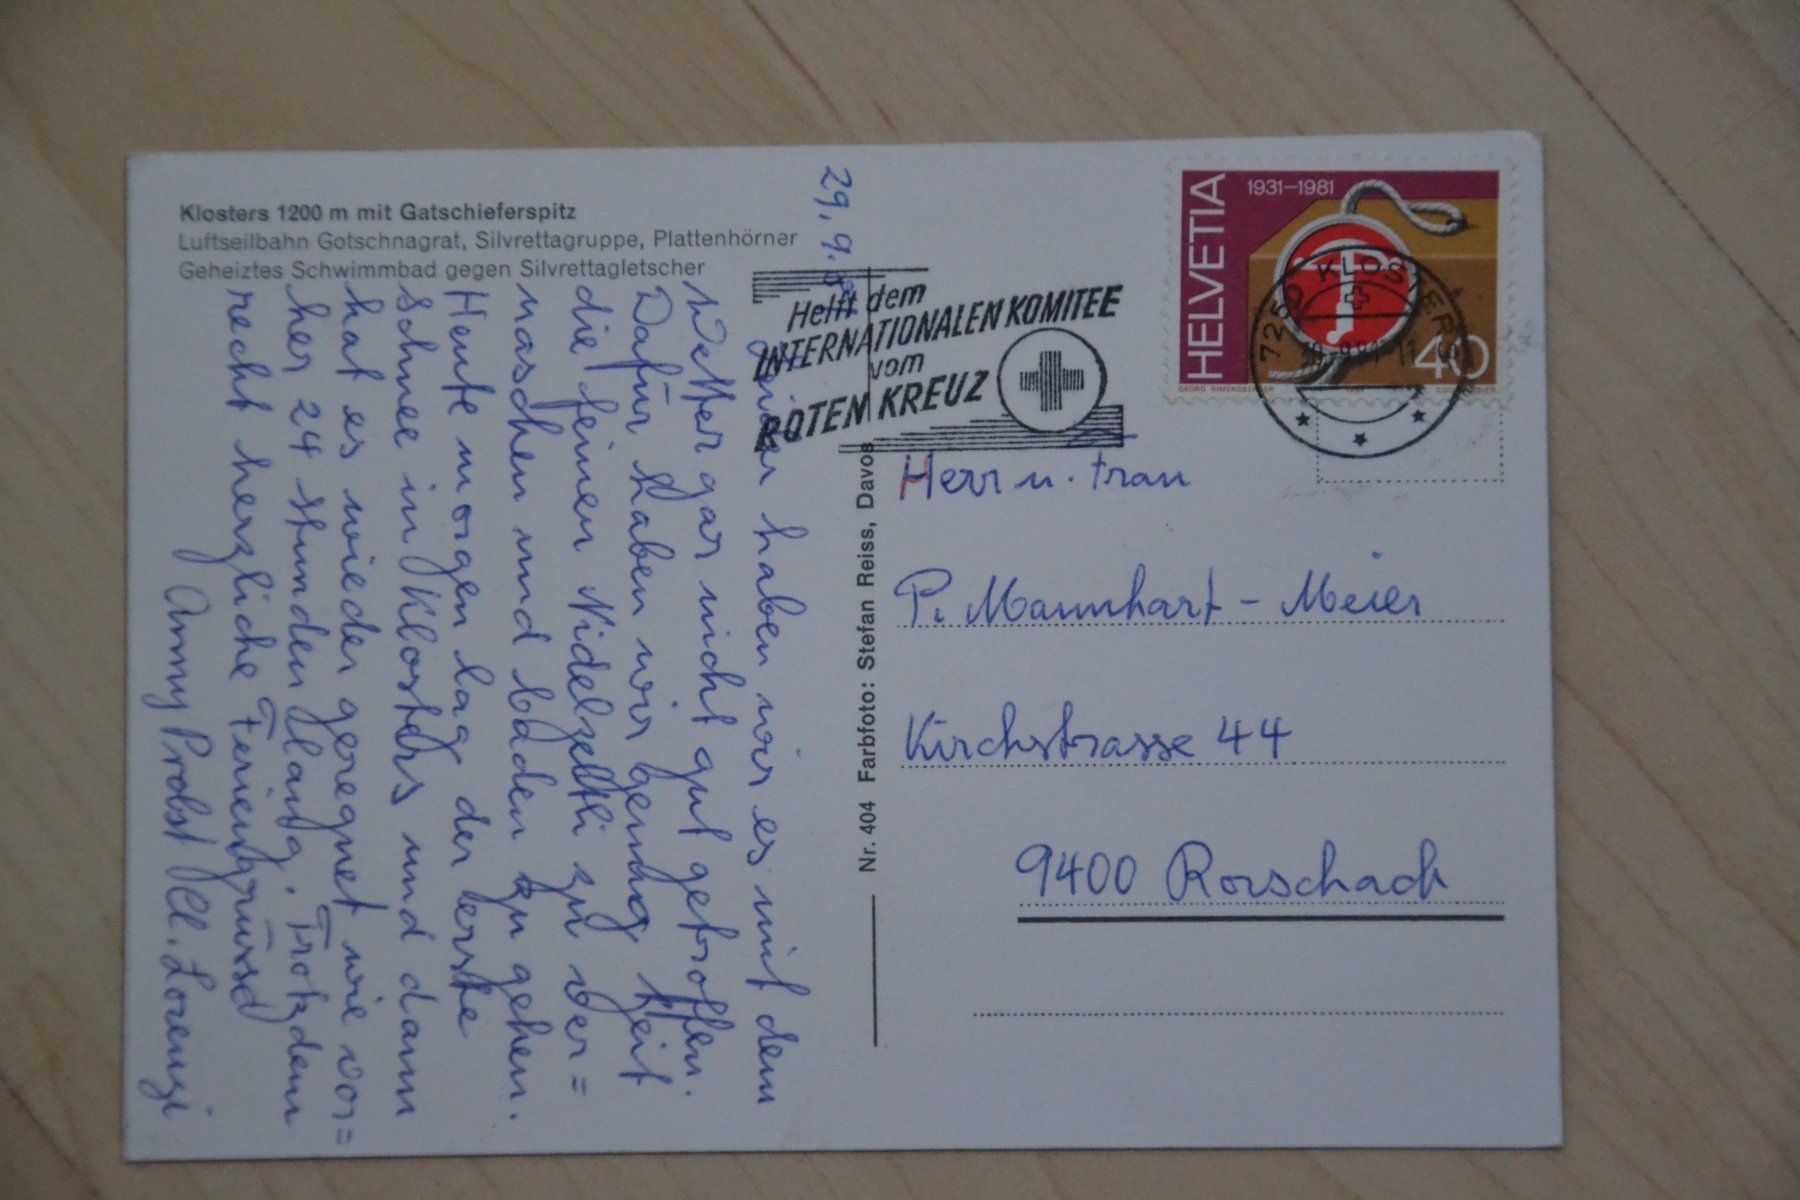 Klosters 1200 m mit Gatschieferspitz
Luftseilbahn Gotschnagrat, Silvrettagruppe, Plattenhörner
Geheiztes Schwimmbad gegen Silvrettagletscher
29. 9.
haben wir es mit dem
Wetter gar nicht gut getroffen.
Dafür haben wir genug Zeit
die feinen Nidelzeltli zu ver=
naschen und baden zu gehen.
Heute morgen lag der erste
Schnee in Klosters und dann
hat es wieder geregnet wie vor=
her 24 Stunden lang. Trotzdem
recht herzliche Feriengrüsse
Anny Probst M. Lorenzi
Helft dem
INTERNATIONALEN KOMITEE
vom
ROTEN KREUZ
Nr. 404 Farbfoto: Stefan Reiss, Davos
HELVETIA
1931–1981
40
GEORG RIMENSBERGER
7250 KLOSTERS
Herr u. Frau
P. Mannhart - Meier
Kirchstrasse 44
9400 Rorschach